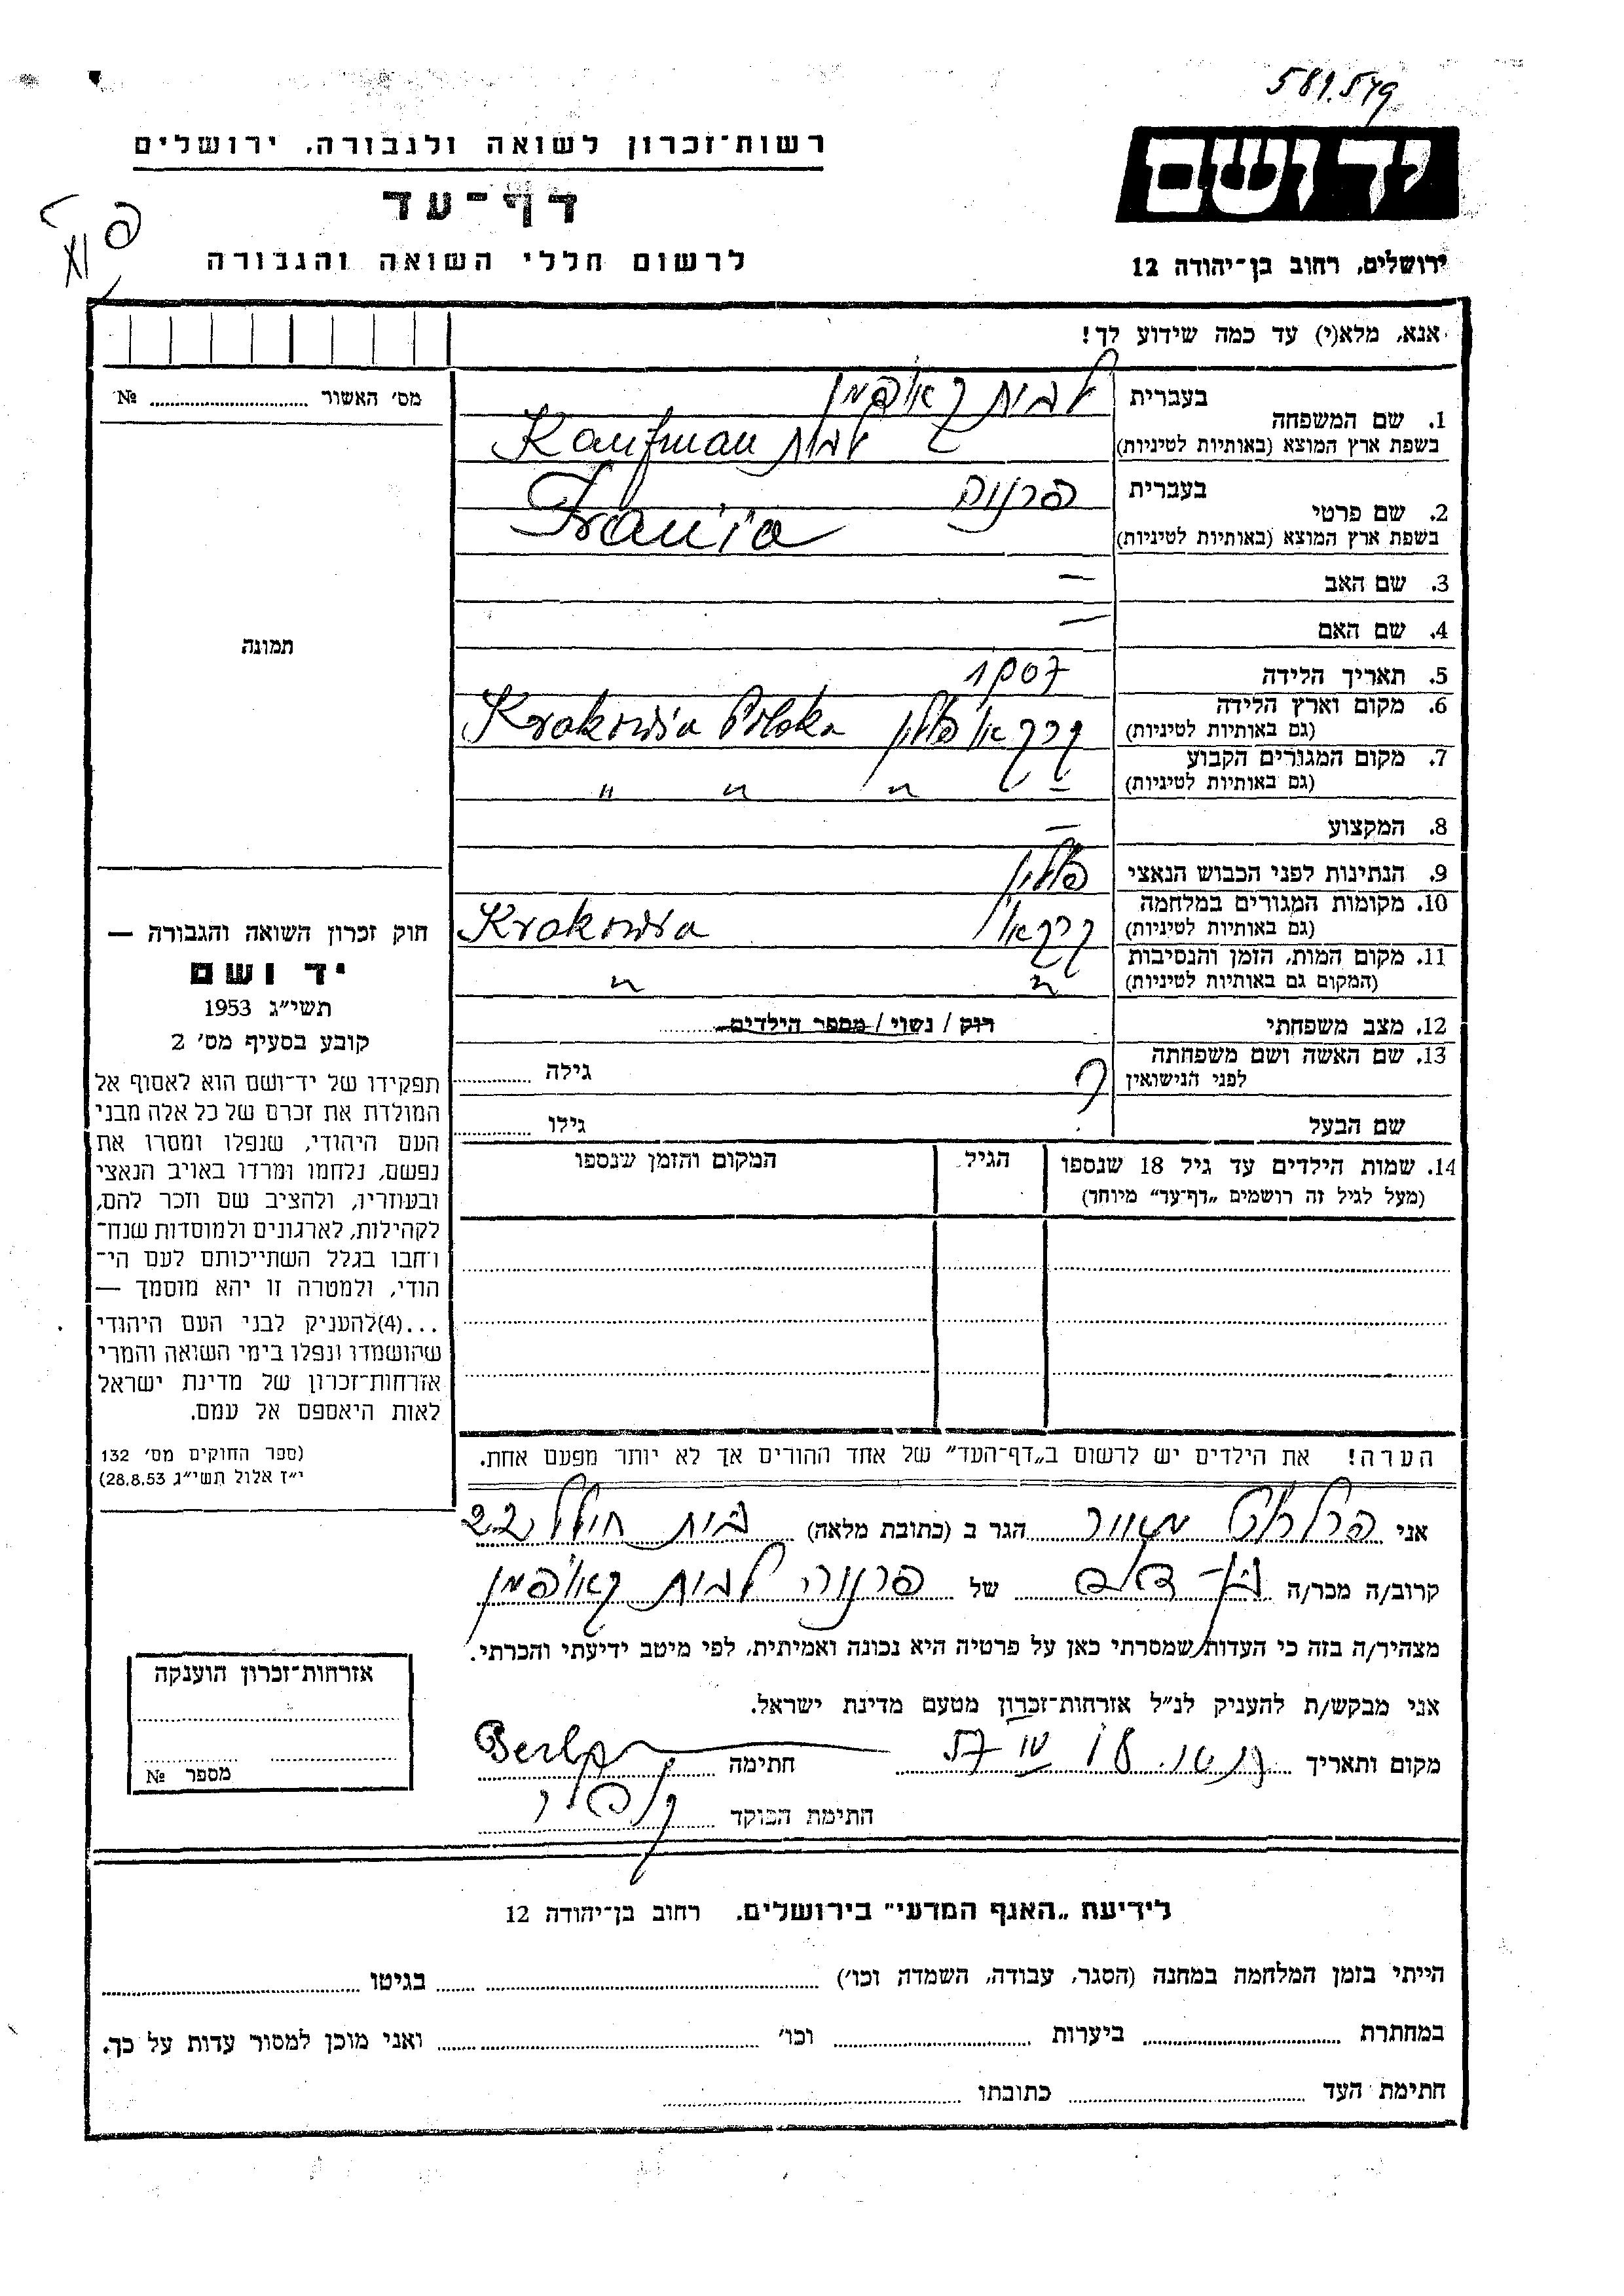 589.579
יד ושם
ירושלים, רחוב בן־יהודה 12
רשות־זכרון לשואה ולגבורה, ירושלים
דף־עד
לרשום חללי השואה והגבורה
אנא, מלא(י) עד כמה שידוע לך!
1. שם המשפחה
בעברית לבית קאופמן
בשפת ארץ המוצא (באותיות לטיניות) לבית Kaufman
2. שם פרטי
בעברית פרניה
בשפת ארץ המוצא (באותיות לטיניות) Frania
3. שם האב —
4. שם האם —
5. תאריך הלידה 1907
6. מקום וארץ הלידה
(גם באותיות לטיניות) פולין Krakowia Polska
7. מקום המגורים הקבוע
(גם באותיות לטיניות) " " " "
8. המקצוע —
9. הנתינות לפני הכבוש הנאצי פולין
10. מקומות המגורים במלחמה
(גם באותיות לטיניות) Krakowia
11. מקום המות, הזמן והנסיבות
(המקום גם באותיות לטיניות) " "
12. מצב משפחתי רוק / נשוי / מספר הילדים
13. שם האשה ושם משפחתה
לפני הנישואין ? גילה
שם הבעל גילו
14. שמות הילדים עד גיל 18 שנספו
(מעל לגיל זה רושמים „דף־עד" מיוחד)
הגיל
המקום והזמן שנספו
הערה! את הילדים יש לרשום ב„דף־העד" של אחד ההורים אך לא יותר מפעם אחת.
אני הגר ב (כתובת מלאה) 22
קרוב/ה מכר/ה בן־דוד של פרניה לבית קאופמן
מצהיר/ה בזה כי העדות שמסרתי כאן על פרטיה היא נכונה ואמיתית, לפי מיטב ידיעתי והכרתי.
אני מבקש/ת להעניק לנ"ל אזרחות־זכרון מטעם מדינת ישראל.
מקום ותאריך 57 חתימה
חתימת הפוקד
מס' האשור №
תמונה
חוק זכרון השואה והגבורה —
יד ושם
תשי"ג 1953
קובע בסעיף מס' 2
תפקידו של יד־ושם הוא לאסוף אל
המולדת את זכרם של כל אלה מבני
העם היהודי, שנפלו ומסרו את
נפשם, נלחמו ומרדו באויב הנאצי
ובעוזריו, ולהציב שם וזכר להם,
לקהילות, לארגונים ולמוסדות שנח־
רחבו בגלל השתייכותם לעם הי־
הודי, ולמטרה זו יהא מוסמך —
...(4)להעניק לבני העם היהודי
שהושמדו ונפלו בימי השואה והמרי
אזרחות־זכרון של מדינת ישראל
לאות היאספם אל עמם.
(ספר החוקים מס' 132
י"ז אלול תשי"ג 28.8.53)
אזרחות־זכרון הוענקה
מספר №
לידיעת „האגף המדעי" בירושלים. רחוב בן־יהודה 12
הייתי בזמן המלחמה במחנה (הסגר, עבודה, השמדה וכו') בגיטו
במחתרת ביערות וכו' ואני מוכן למסור עדות על כך.
חתימת העד כתובתו